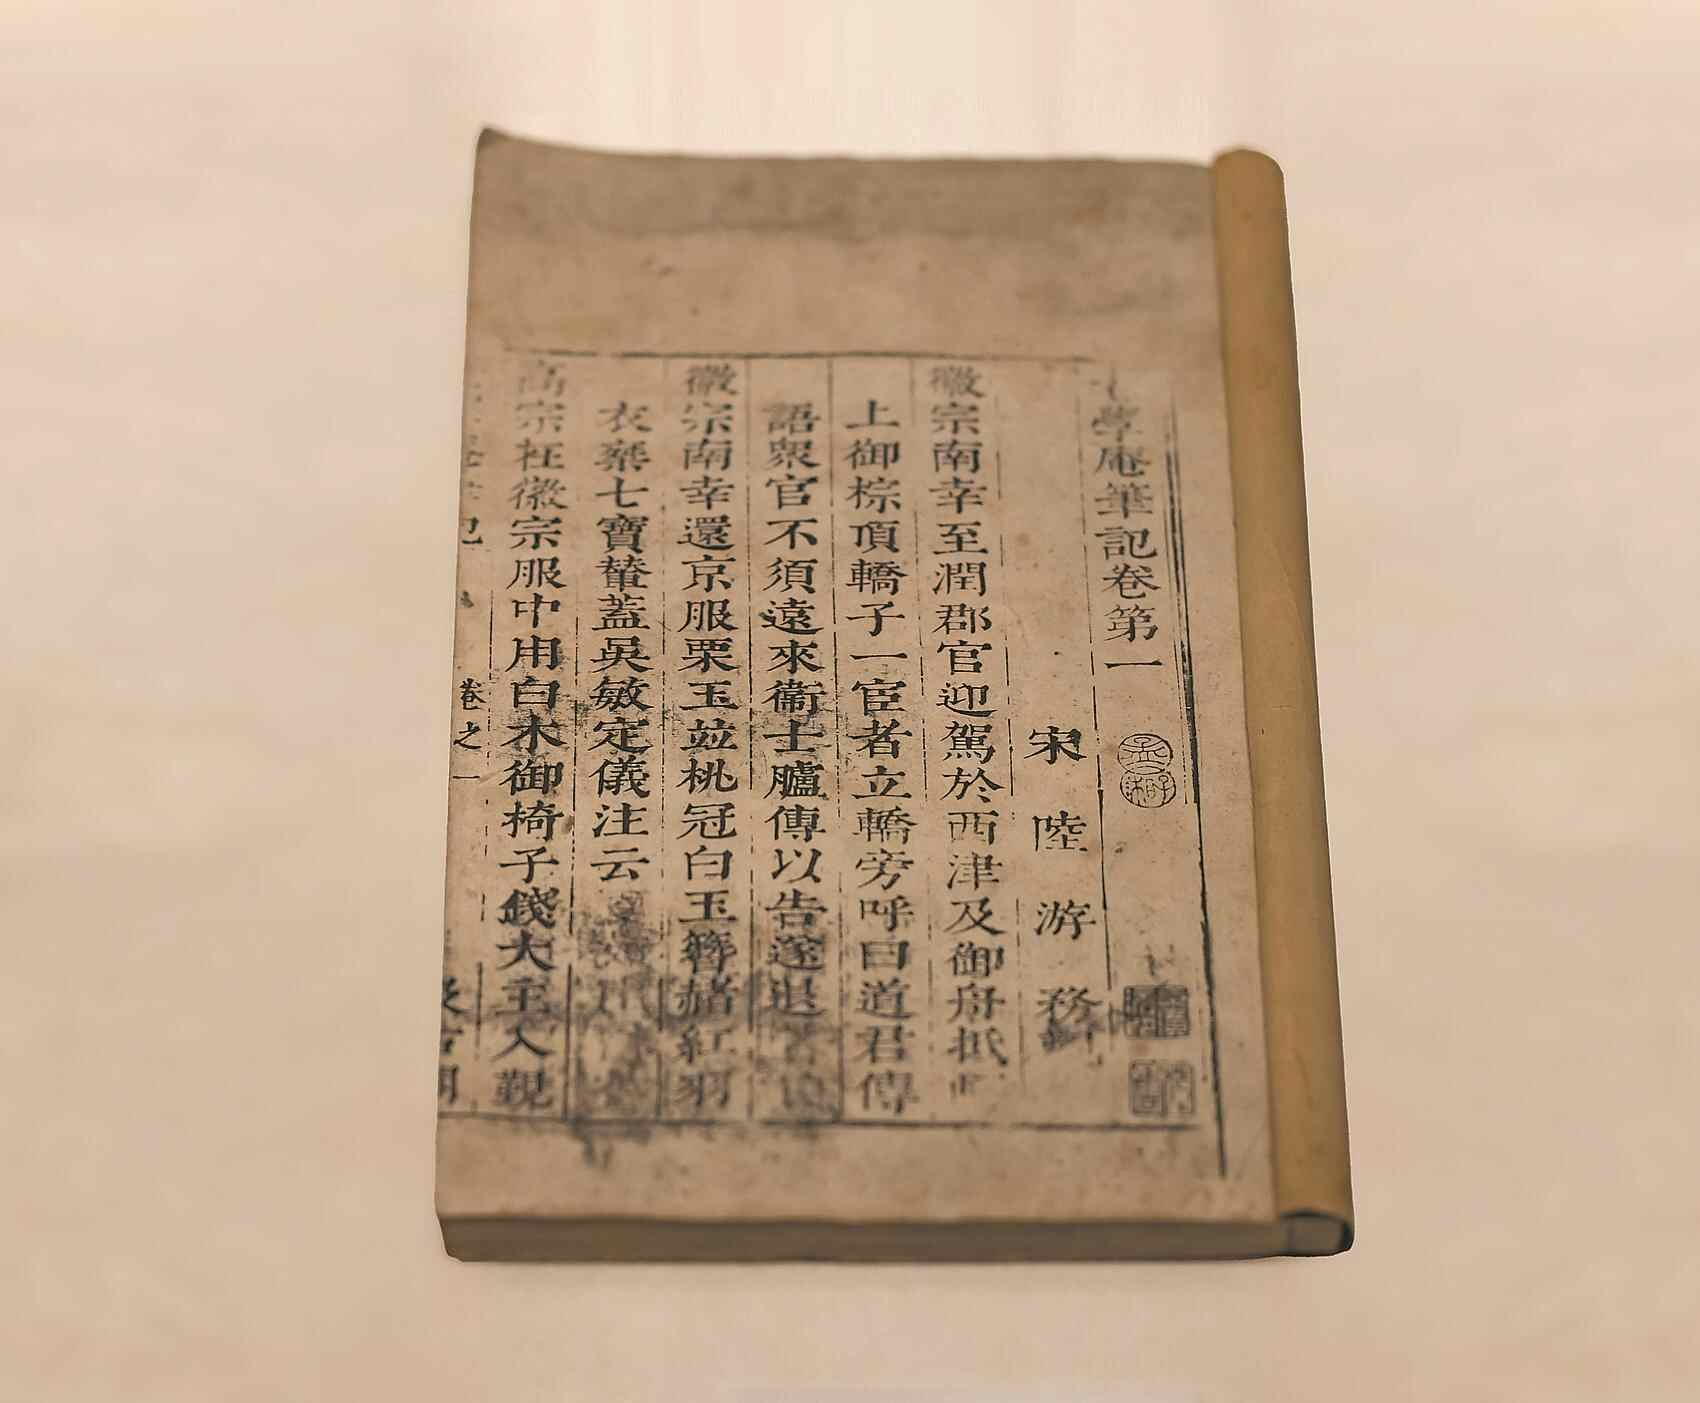 學庵筆記卷第一
宋陸游務
徽宗南幸至潤郡官迎駕於西津及御舟抵
上御棕頂轎子一宦者立轎旁呼曰道君傳
語衆官不須遠來衞士臚傳以告遂退
徽宗南幸還京服栗玉並桃冠白玉簪赭紅羽
衣乘七寶輦蓋吳敏定儀注云
高宗在徽宗服中用白木御椅子錢大主入覲
卷之一